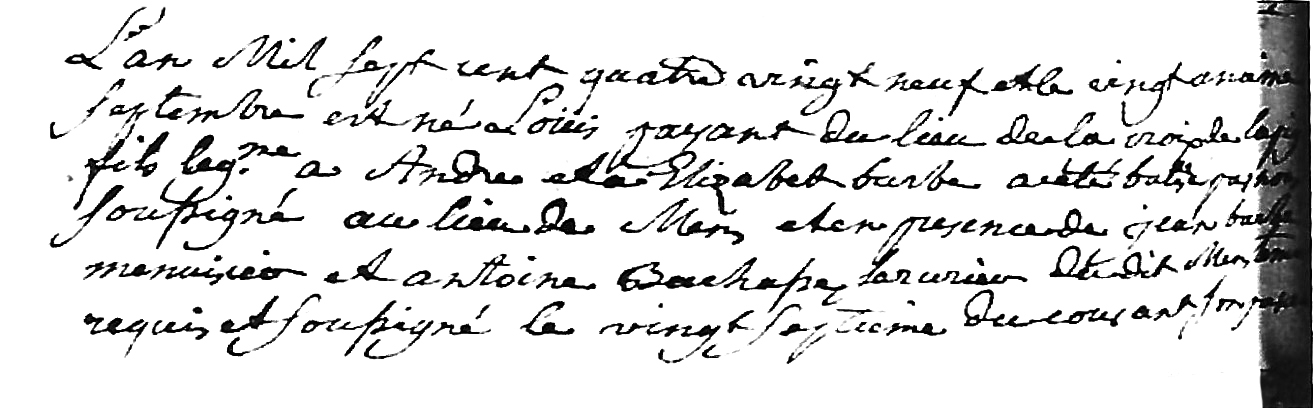 L'an Mil sept cent quatre vingt neuf et le vingt
septembre est né Louis payant du lieu de la croix de
fils leg.me a André et a Elizabet barbe a été batisé par nous
soussigné au lieu de Mens et en presence de jean barbe
menuisier et antoine serurier du dit Mens
requis et soussigné le vingt septieme du courant